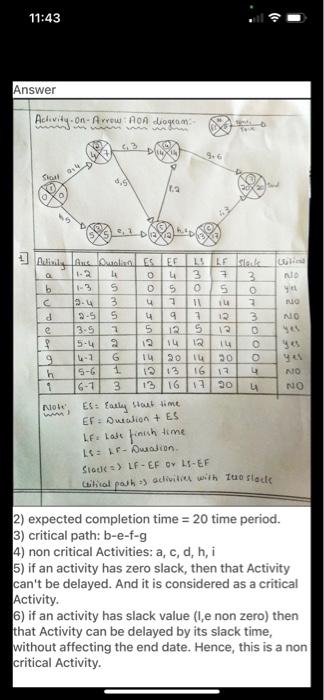 11:43
Answer
Activity-On-Arrow: AOA diagram:-
c, 3
g, 6
a, 4
Start
d, 5
f, 2
End
b, 5
e, 7
h, 1
i, 3
1] Activity Arc Duration ES EF LS LF Slack Critical
a 1-2 4 0 4 3 7 3 NO
b 1-3 5 0 5 0 5 0 yes
c 2-4 3 4 7 11 14 7 NO
d 2-5 5 4 9 7 12 3 NO
e 3-5 7 5 12 5 12 0 yes
f 5-4 2 12 14 12 14 0 yes
g 4-7 6 14 20 14 20 0 yes
h 5-6 1 12 13 16 17 4 NO
i 6-7 3 13 16 17 20 4 NO
Note, ES = Early start time
EF = Duration + ES
LF = Late finish time
LS = LF - Duration.
Slack => LF-EF or LS-EF
Critical path => activities with zero slack
2) expected completion time = 20 time period.
3) critical path: b-e-f-g
4) non critical Activities: a, c, d, h, i
5) if an activity has zero slack, then that Activity
can't be delayed. And it is considered as a critical
Activity.
6) if an activity has slack value (I,e non zero) then
that Activity can be delayed by its slack time,
without affecting the end date. Hence, this is a non
critical Activity.